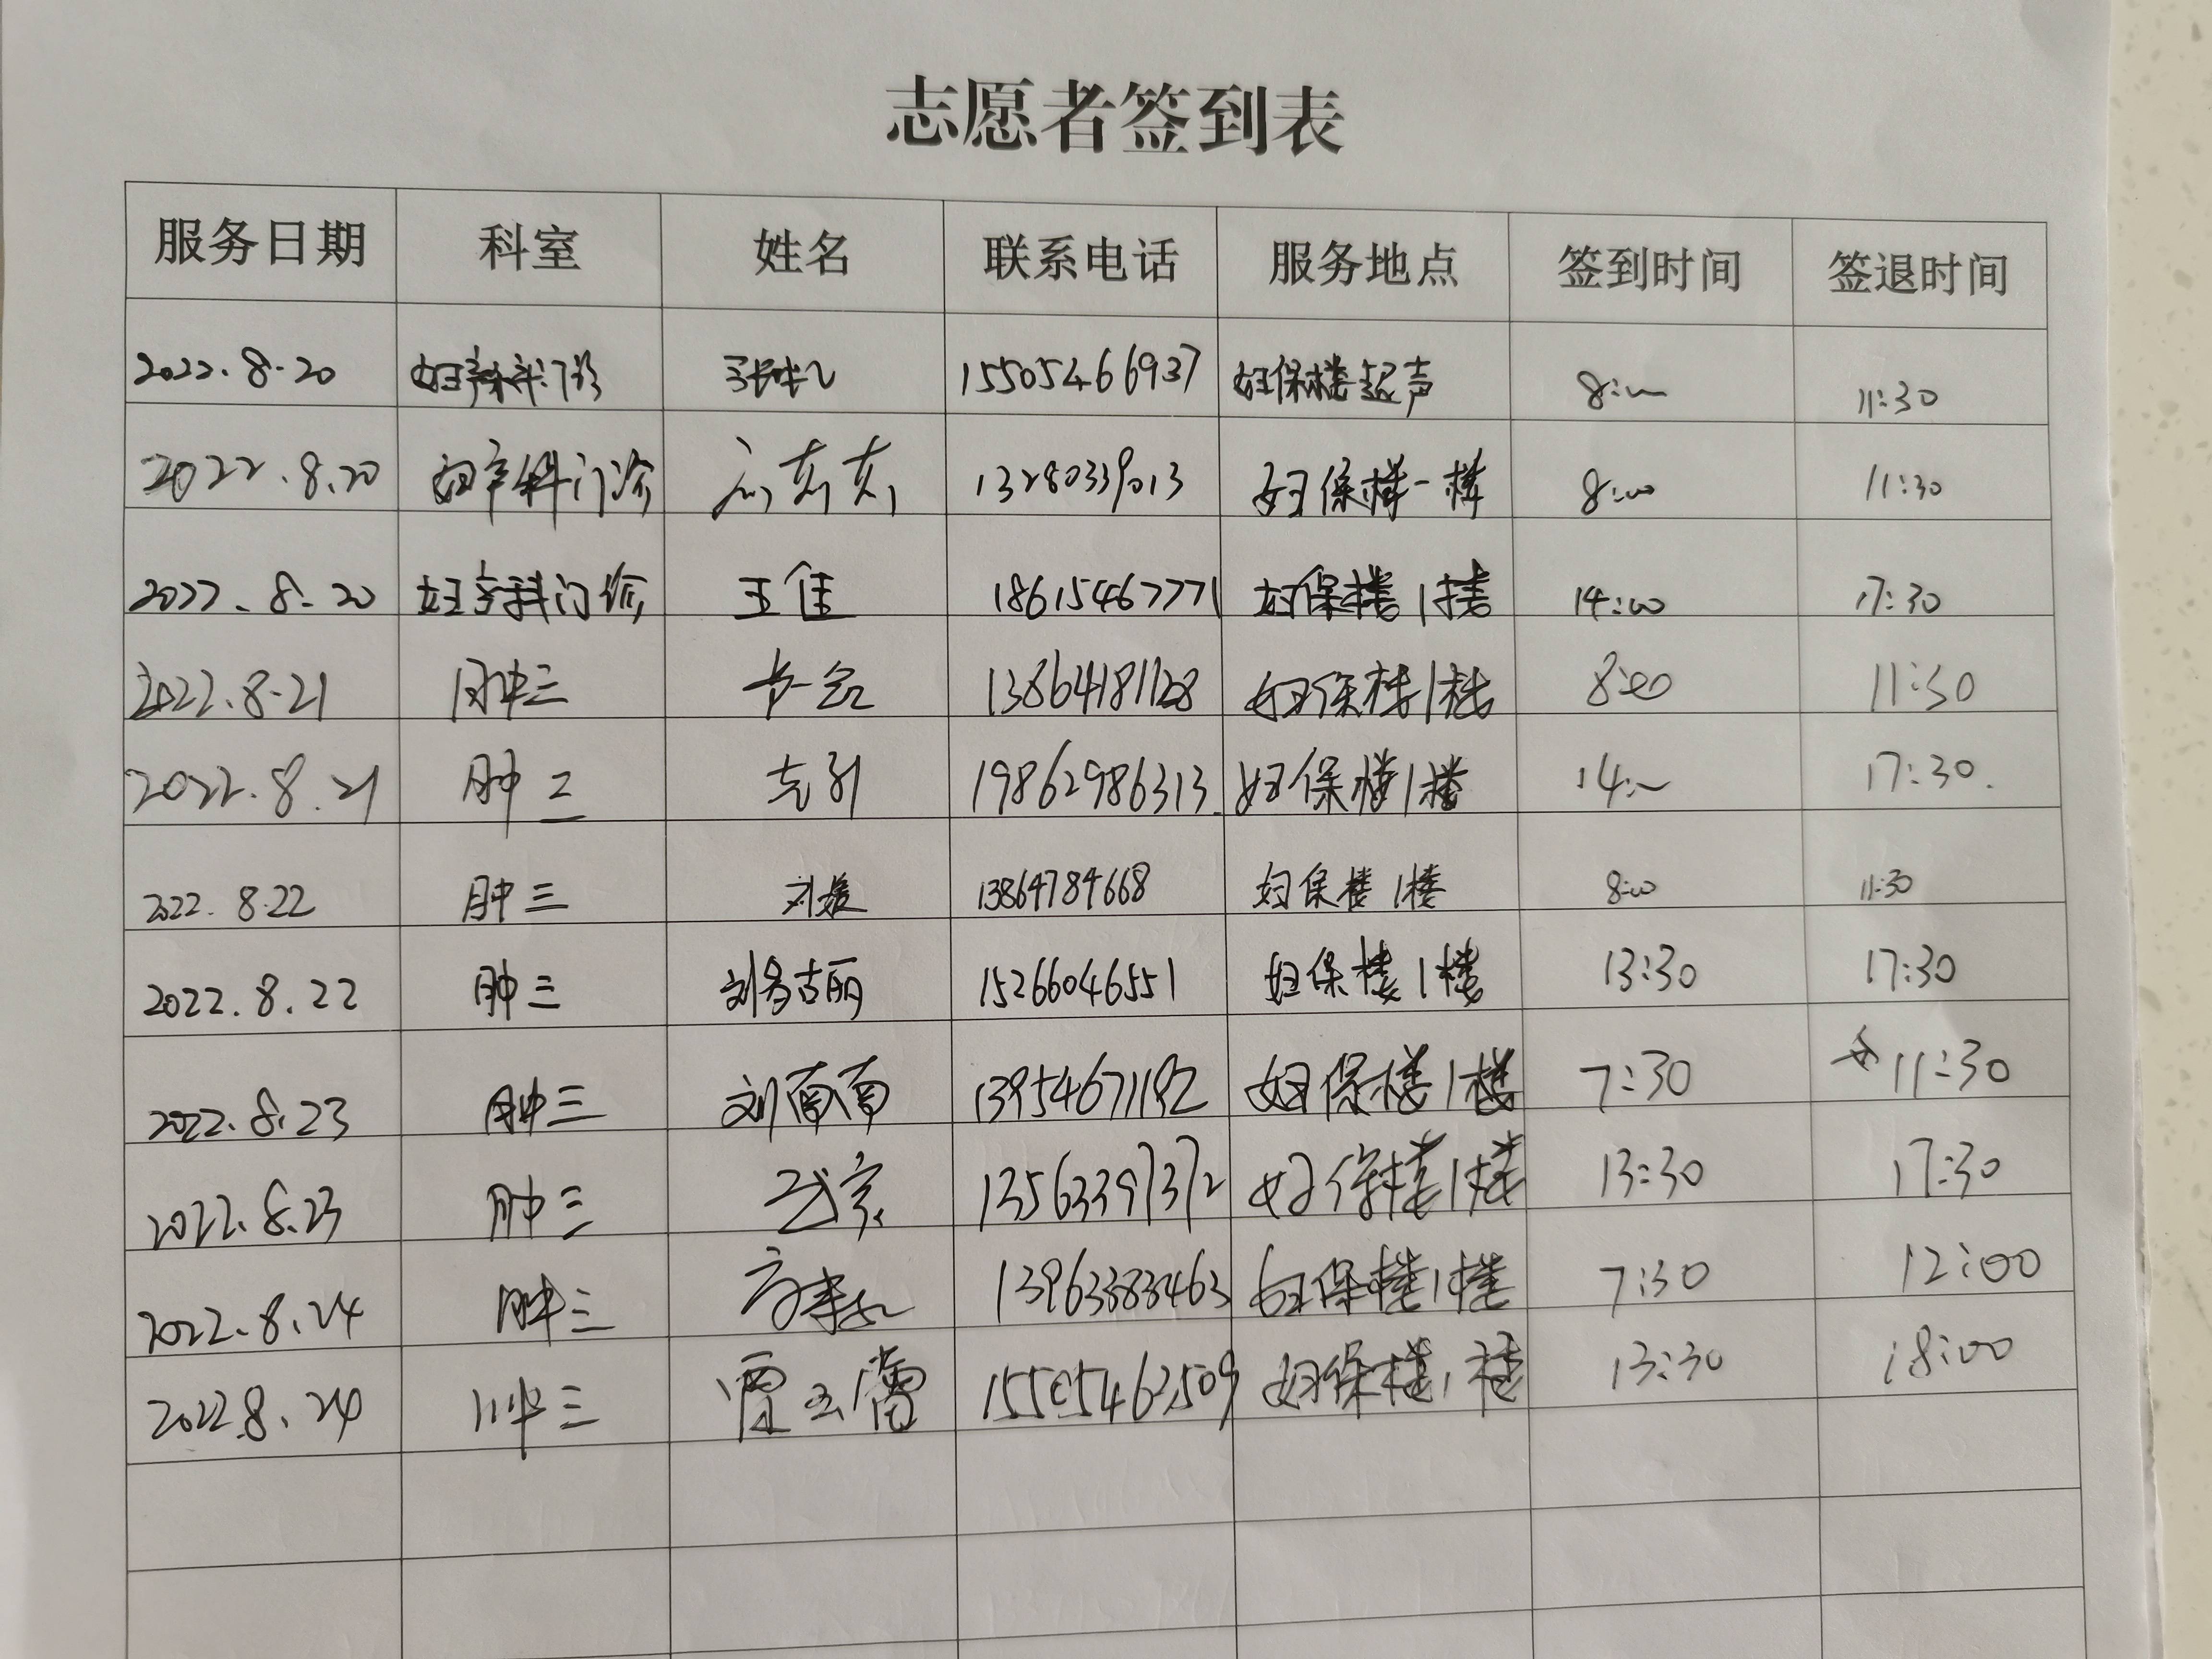 志愿者签到表
服务日期 科室 姓名 联系电话 服务地点 签到时间 签退时间
2022.8.20 妇产科门诊 15505466937 妇保楼超声 8:00 11:30
2022.8.20 妇产科门诊 13280339013 妇保楼一楼 8:00 11:30
2022.8.20 妇产科门诊 王佳 18615467771 妇保楼1楼 14:00 17:30
2022.8.21 肿三 13864181128 妇保楼1楼 8:00 11:30
2022.8.21 肿三 19862986313 妇保楼1楼 14:00 17:30.
2022.8.22 肿三 刘媛 13864784668 妇保楼1楼 8:00 11:30
2022.8.22 肿三 15266046551 妇保楼1楼 13:30 17:30
2022.8.23 肿三 刘南南 13954671192 妇保楼1楼 7:30 11:30
2022.8.23 肿三 13563397372 妇保楼1楼 13:30 17:30
2022.8.24 肿三 13963383463 妇保楼1楼 7:30 12:00
2022.8.24 肿三 15505462509 妇保楼1楼 13:30 18:00